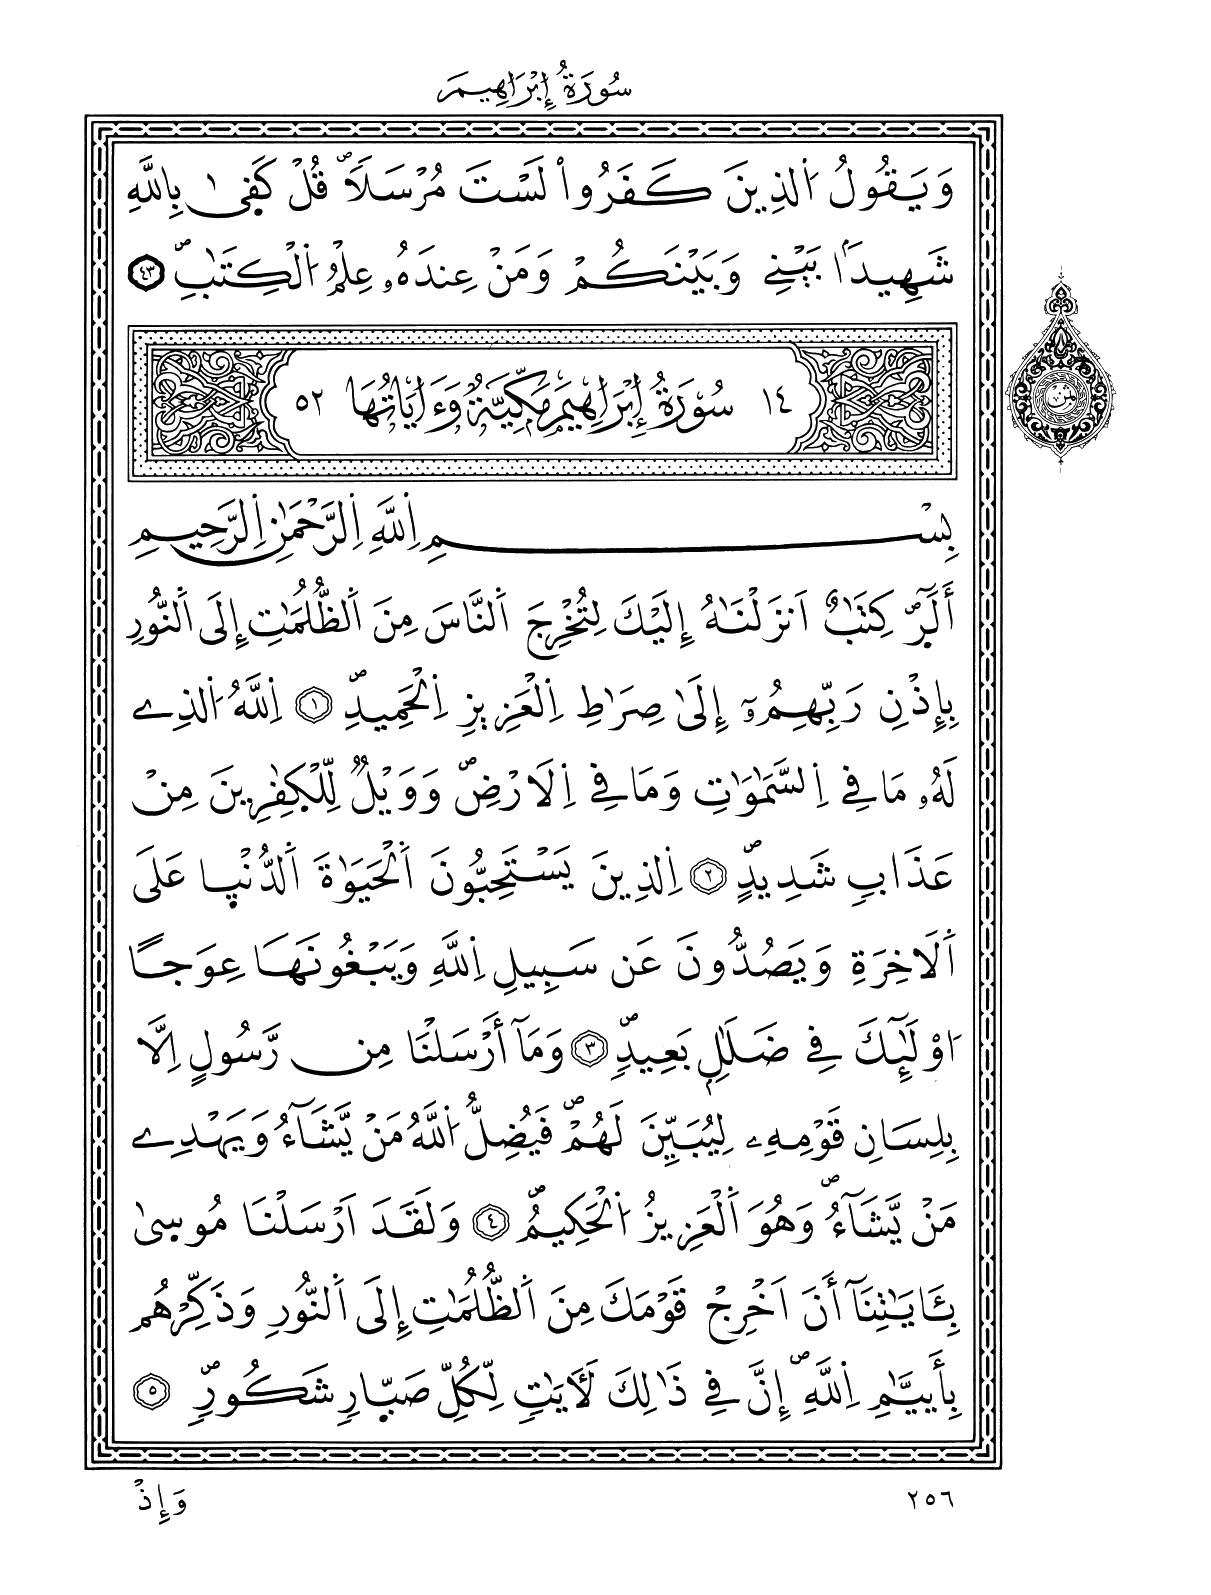 سُورَةُ إِبْرَاهِيمَ
وَيَقُولُ اُ۬لذِينَ كَفَرُواْ لَسْتَ مُرْسَلاٗۖ قُلْ كَف۪ىٰ بِاللَّهِ
شَهِيداَۢ بَيْنِے وَبَيْنَكُمْ وَمَنْ عِندَهُۥ عِلْمُ اُ۬لْكِتَٰبِۖ ٤٣
١٤ سُورَةُ إِبْرَاهِيمَ مَكِّيَّةٌ وَءَايَاتُهَا ٥٢
بِسْمِ اِ۬للَّهِ اِ۬لرَّحْمَٰنِ اِ۬لرَّحِيمِ
أَلَٓرۖ كِتَٰبٌ اَنزَلْنَٰهُ إِلَيْكَ لِتُخْرِجَ اَ۬لنَّاسَ مِنَ اَ۬لظُّلُمَٰتِ إِلَى اَ۬لنُّورِ
بِإِذْنِ رَبِّهِمُۥٓ إِلَىٰ صِرَٰطِ اِ۬لْعَزِيزِ اِ۬لْحَمِيدِۖ ١ اِ۬للَّهُ اُ۬لذِے
لَهُۥ مَا فِے اِ۬لسَّمَٰوَٰتِ وَمَا فِے اِ۬لَارْضِۖ وَوَيْلٞ لِّلْكٰ۪فِرِينَ مِنْ
عَذَابٖ شَدِيدٍۖ ٢ اِ۬لذِينَ يَسْتَحِبُّونَ اَ۬لْحَيَوٰةَ اَ۬لدُّنْي۪ا عَلَى
اَ۬لَاخِرَةِ وَيَصُدُّونَ عَن سَبِيلِ اِ۬للَّهِ وَيَبْغُونَهَا عِوَجاً
اُوْلَٰٓئِكَ فِے ضَلَٰلِۢ بَعِيدٖۖ ٣ وَمَآ أَرْسَلْنَا مِن رَّسُولٍ اِلَّا
بِلِسَانِ قَوْمِهِۦ لِيُبَيِّنَ لَهُمْۖ فَيُضِلُّ اُ۬للَّهُ مَنْ يَّشَآءُ وَيَهْدِے
مَنْ يَّشَآءُۖ وَهُوَ اَ۬لْعَزِيزُ اُ۬لْحَكِيمُۖ ٤ وَلَقَدَ اَرْسَلْنَا مُوس۪ىٰ
بِـَٔايَٰتِنَآ أَنَ اَخْرِجْ قَوْمَكَ مِنَ اَ۬لظُّلُمَٰتِ إِلَى اَ۬لنُّورِ وَذَكِّرْهُم
بِأَيَّيٰمِ اِ۬للَّهِۖ إِنَّ فِے ذَٰلِكَ لَأٓيَٰتٖ لِّكُلِّ صَبّ۪ارٖ شَكُورٖۖ ٥
وَإِذْ
٢٥٦